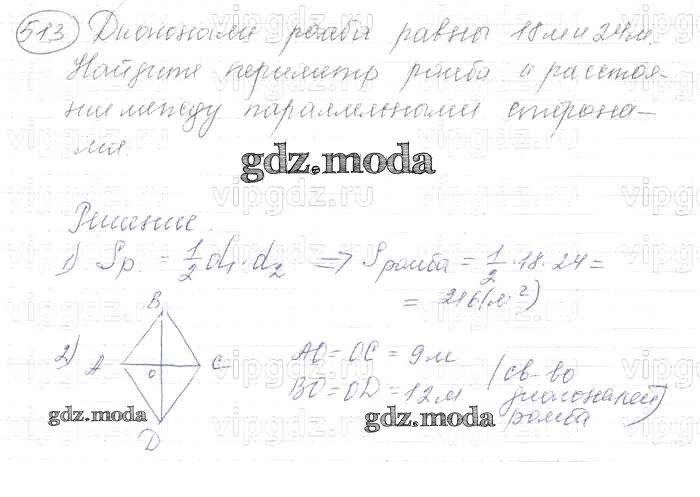 513 Диагонали ромба равны 18 м и 24 м.
Найдите периметр ромба и расстоя-
ние между параллельными сторона-
ми.
gdz.moda
Решение.
1) Sр. = 1/2 d1 · d2 => Sромба = 1/2 · 18 · 24 =
= 216 (м²)
2) B
A O C
D
AO = OC = 9 м
BO = OD = 12 м
(св-во
диагоналей
ромба)
gdz.moda
gdz.moda
vipgdz.ru